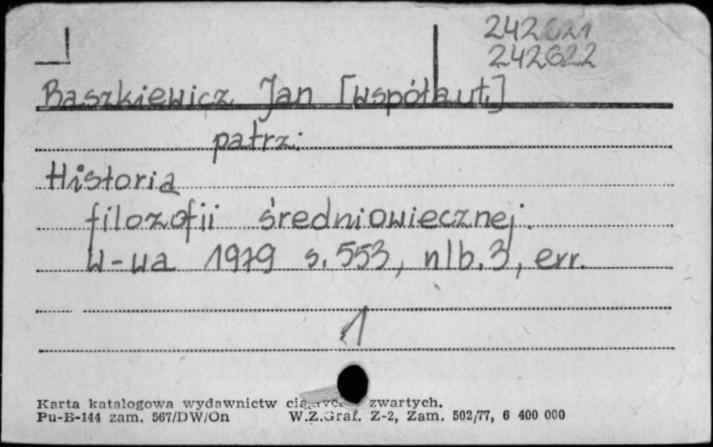 242621
242622
Baszkiewicz Jan [współaut.]
patrz:
Historia
filozofii średniowiecznej.
W-wa 1979 s. 553, nlb. 3, err.
1
Karta katalogowa wydawnictw zwartych.
Pu-B-144 zam. 567/DW/On W.Z.Graf. Z-2, Zam. 502/77, 6 400 000